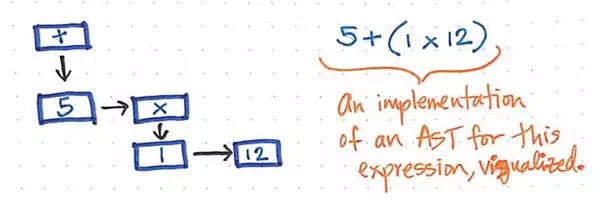 +
5
x
1
12
5+(1x12)
An implementation
of an AST for this
expression, visualized.